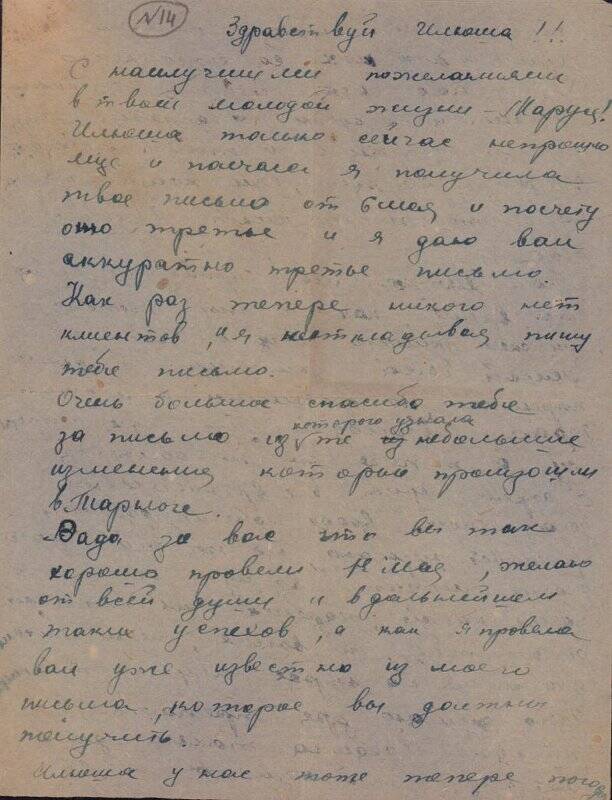 №14
Здравствуй Илюша!!!
С наилучшими пожеланиями
в твоей молодой жизни – Маруц!
Илюша только сейчас непрошло
еще и полчаса я получила
твое письмо от 6 мая и посчету
оно третье и я даю вам
аккуратно третье письмо.
Как раз теперь никого нет
клиентов, и я неоткладывая пишу
тебе письмо.
Очень большое спасибо тебе
за письмо из которого узнала уже небольшие
изменения которые произошли
в Тарноге.
Рада за вас что вы так
хорошо провели 1 мая, желаю
от всей души и в дальнейшем
таких успехов, а как я провела
вам уже известно из моего
письма, которое вы должны
получить.
Илюша у нас тоже теперь погода